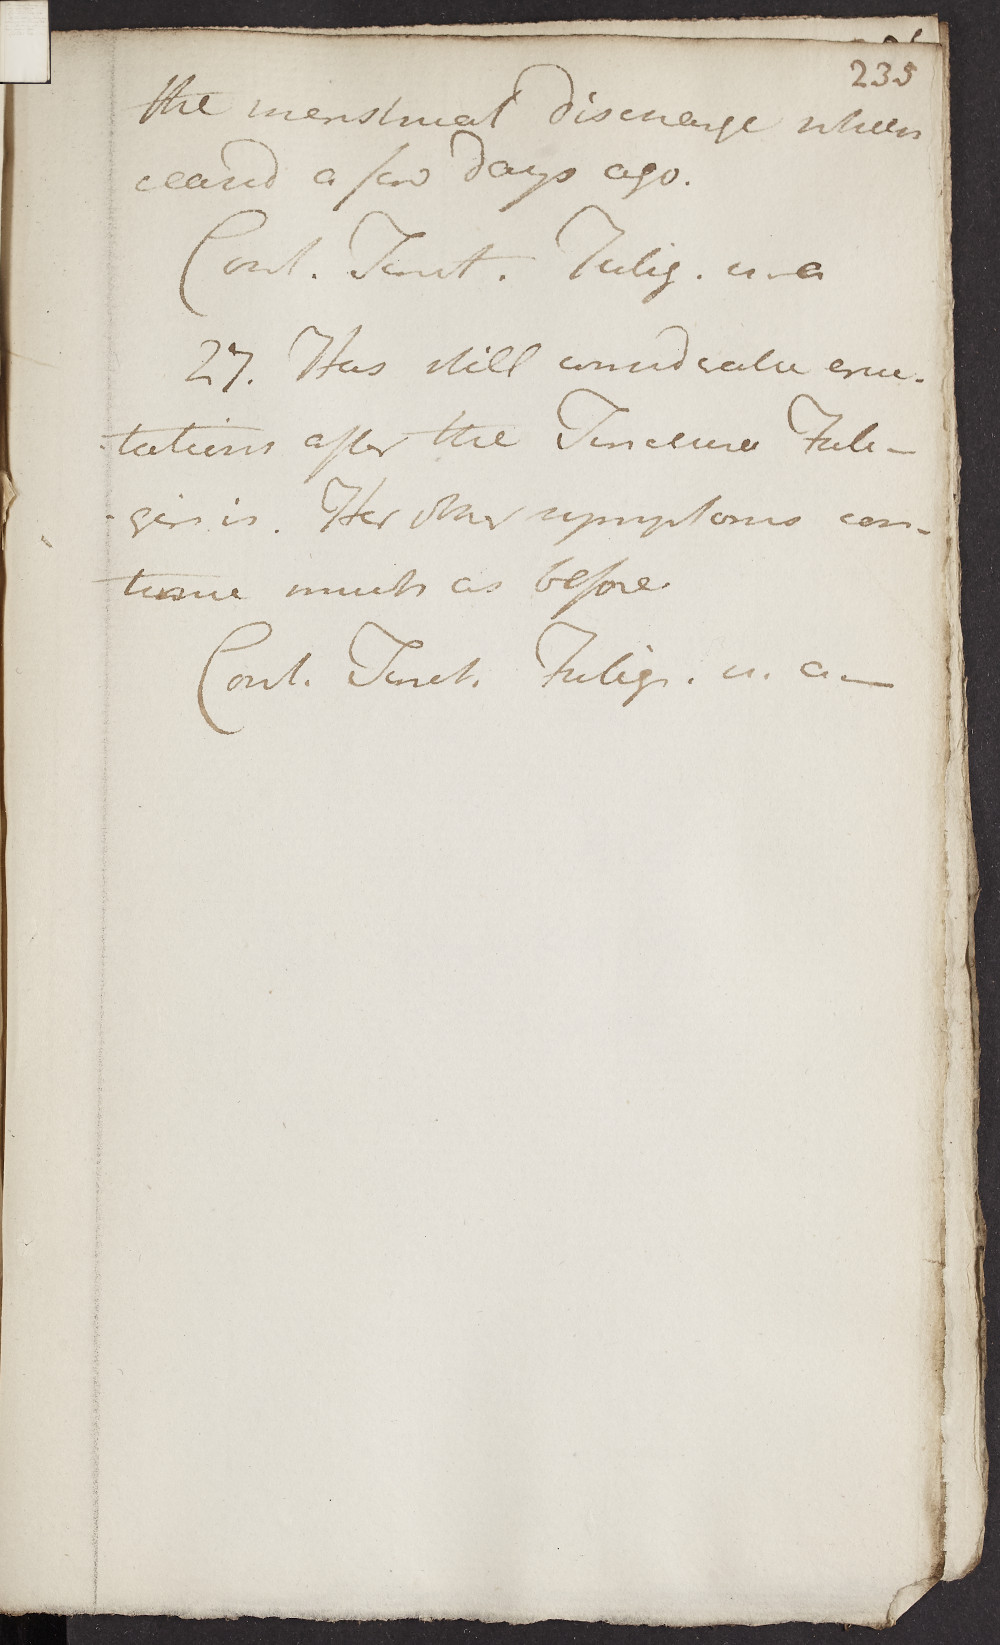 235
the menstrual discharge which
ceased a few days ago.
Cont. Tinct. Fulig. u. a
27. Has still considerable eruc-
-tations after the Tinctura Fuli-
-ginis. Her other symptoms con-
-tinue much as before
Cont. Tinct. Fulig. u. a—